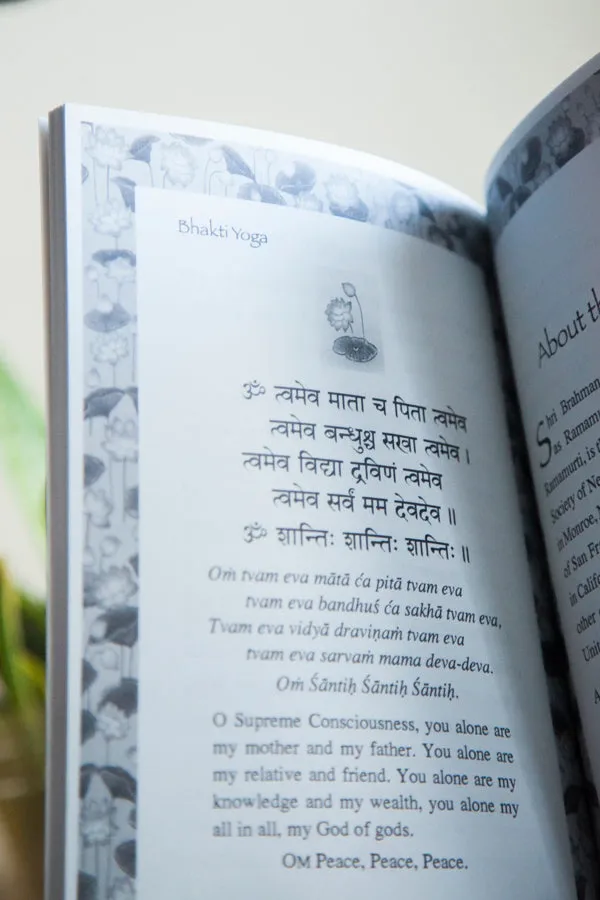 Bhakti Yoga
ॐ त्वमेव माता च पिता त्वमेव
त्वमेव बन्धुश्च सखा त्वमेव।
त्वमेव विद्या द्रविणं त्वमेव
त्वमेव सर्वं मम देवदेव॥
ॐ शान्तिः शान्तिः शान्तिः॥
Oṁ tvam eva mātā ća pitā tvam eva
tvam eva bandhuś ća sakhā tvam eva,
Tvam eva vidyā draviṇaṁ tvam eva
tvam eva sarvaṁ mama deva-deva.
Oṁ Śāntiḥ Śāntiḥ Śāntiḥ.
O Supreme Consciousness, you alone are
my mother and my father. You alone are
my relative and friend. You alone are my
knowledge and my wealth, you alone my
all in all, my God of gods.
OM Peace, Peace, Peace.
About
Shri Brahman
as Ramamu
Ramamurti, is
Society of Ne
in Monroe,
of San
in Calif
other
Unit